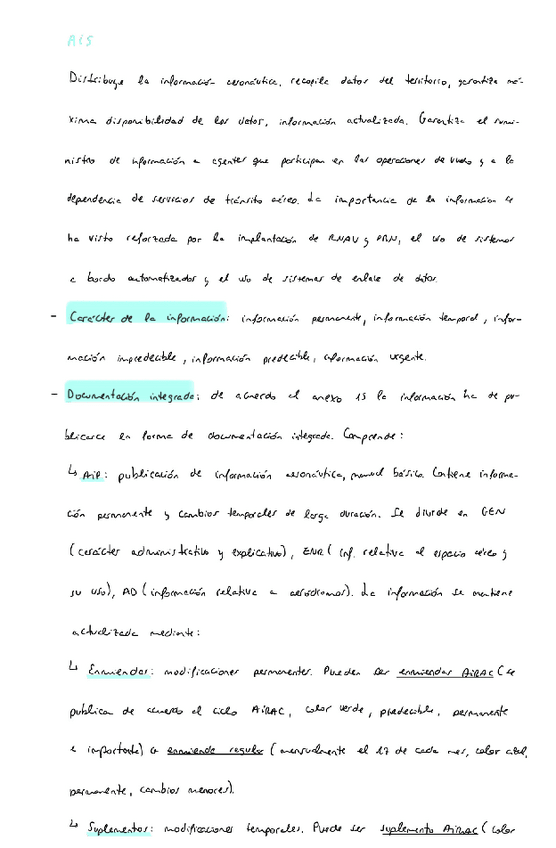 AIS
Distribuye la información aeronáutica, recopila datos del territorio, garantiza má-
xima disponibilidad de los datos, información actualizada. Garantiza el sumi-
nistro de información a agentes que participan en las operaciones de vuelo y a la
dependencia de servicios de tránsito aéreo. La importancia de la información se
ha visto reforzada por la implantación de RNAV y PBN, el uso de sistemas
a bordo automatizados y el uso de sistemas de enlace de datos.
- Carácter de la información: información permanente, información temporal, infor-
mación impredecible, información predecible, información urgente.
- Documentación integrada: de acuerdo al anexo 15 la información ha de pu-
blicarse en forma de documentación integrada. Comprende:
↳ AIP: publicación de información aeronáutica, manual básico. Contiene informa-
ción permanente y cambios temporales de larga duración. Se divide en GEN
(carácter administrativo y explicativo), ENR (inf. relativa al espacio aéreo y
su uso), AD (información relativa a aeródromos). La información se mantiene
actualizada mediante:
↳ Enmiendas: modificaciones permanentes. Pueden ser enmiendas AIRAC (se
publica de acuerdo al ciclo AIRAC, color verde, predecible, permanente
e importante) o enmienda regular (mensualmente el 17 de cada mes, color azul,
permanente, cambios menores).
↳ Suplementos: modificaciones temporales. Puede ser suplemento AIRAC (color